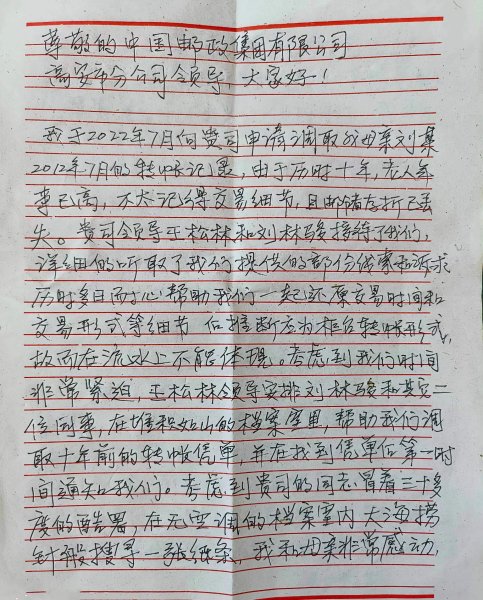 尊敬的中国邮政集团有限公司
高安市分公司领导，大家好！
我于2022年7月向贵司申请调取我母亲刘某
2012年7月的转帐记录，由于历时十年，老人年
事已高，不太记得交易细节，且邮储存折已丢
失。贵司领导王松林和刘林骏接待了我们，
详细的听取了我们提供的部份线索和诉求
历时多日而于心帮助我们一起还原交易时间和
交易形式等细节 后推断应为柜台转帐形式，
故而在流水上不能体现。考虑到我们时间
非常紧迫，王松林领导安排刘林骏和其它二
位同事，在堆积如山的档案室里，帮助我们调
取十年前的转帐凭单，并在找到凭单后第一时
间通知我们。考虑到贵司的同志冒着三十多
度的酷暑，在无空调的档案室内大海捞
针般搜寻一张纸条，我和母亲非常感动，